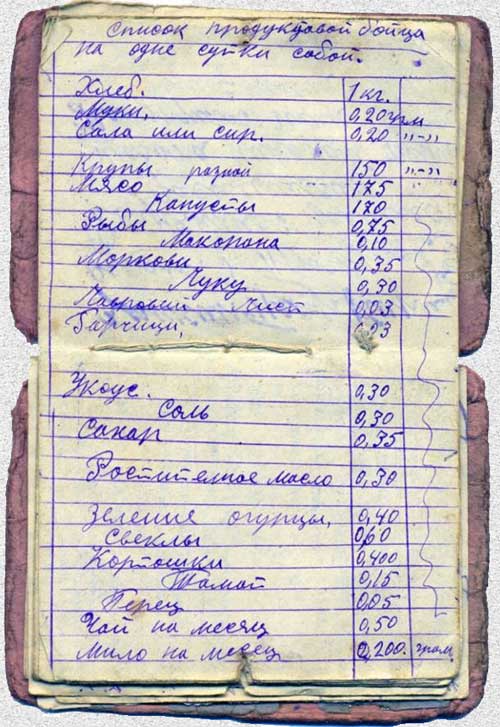 Список продуктовой бойца
на одне сутки собой.
Хлеб. 1 кг.
Муки. 0,20 грм
Сала или сир. 0,20 "-"
Крупы разной 150 "-"
Мясо 175
Капусты 170
Рыбы 0,75
Макорона 0,10
Моркови 0,35
Луку 0,30
Лавровий лист 0,03
Гарчици, 0,03
Укоус. 0,30
Соль 0,30
Сахар 0,35
Ростителное масло 0,30
Зеление огурцы, 0,40
Свеклы 0,60
Кортошки 0,400
Томат 0,15
Перец 0,05
Чай на месяц 0,50
Мило на месец 0,200. грам